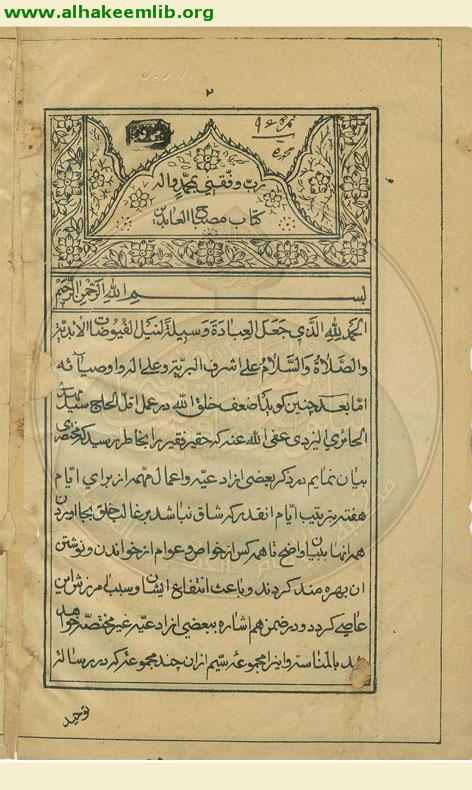 www.alhakeemlib.org
٢
رب وفقني بمحمد واله
كتاب مصباح العابدين
بسم الله الرحمن الرحيم
الحمد لله الذي جعل العبادة وسيلة لنيل الفيوضات الأبدية
والصلاة والسلام على اشرف البرية وعلى اله واوصيائه
اما بعد چنين كويد اضعف خلق الله در عمل اقل الحاج سيد
الحائري اليزدي عفى الله عنه كه حقير فقير را بخاطر رسيد كه مختصرى
بيان نمايم در ذكر بعضى از ادعيه واعمال مهمه از براي ايام
هفته بترتيب ايام انقدر كه شاق نباشد بر غالب خلق بجا اوردن
همه انها ببيان واضح تا همه كس از خواص وعوام از خواندن ونوشتن
ان بهره مند كردند وباعث انتفاع ايشان وسبب امرزش اين
عاصي كردد ودر ضمن هم اشاره ببعضى از ادعيه غير مختصه خواهد
شد بالمناسبه واين مجموعه سيم از ان چند مجموعه كه در رساله
توحيد